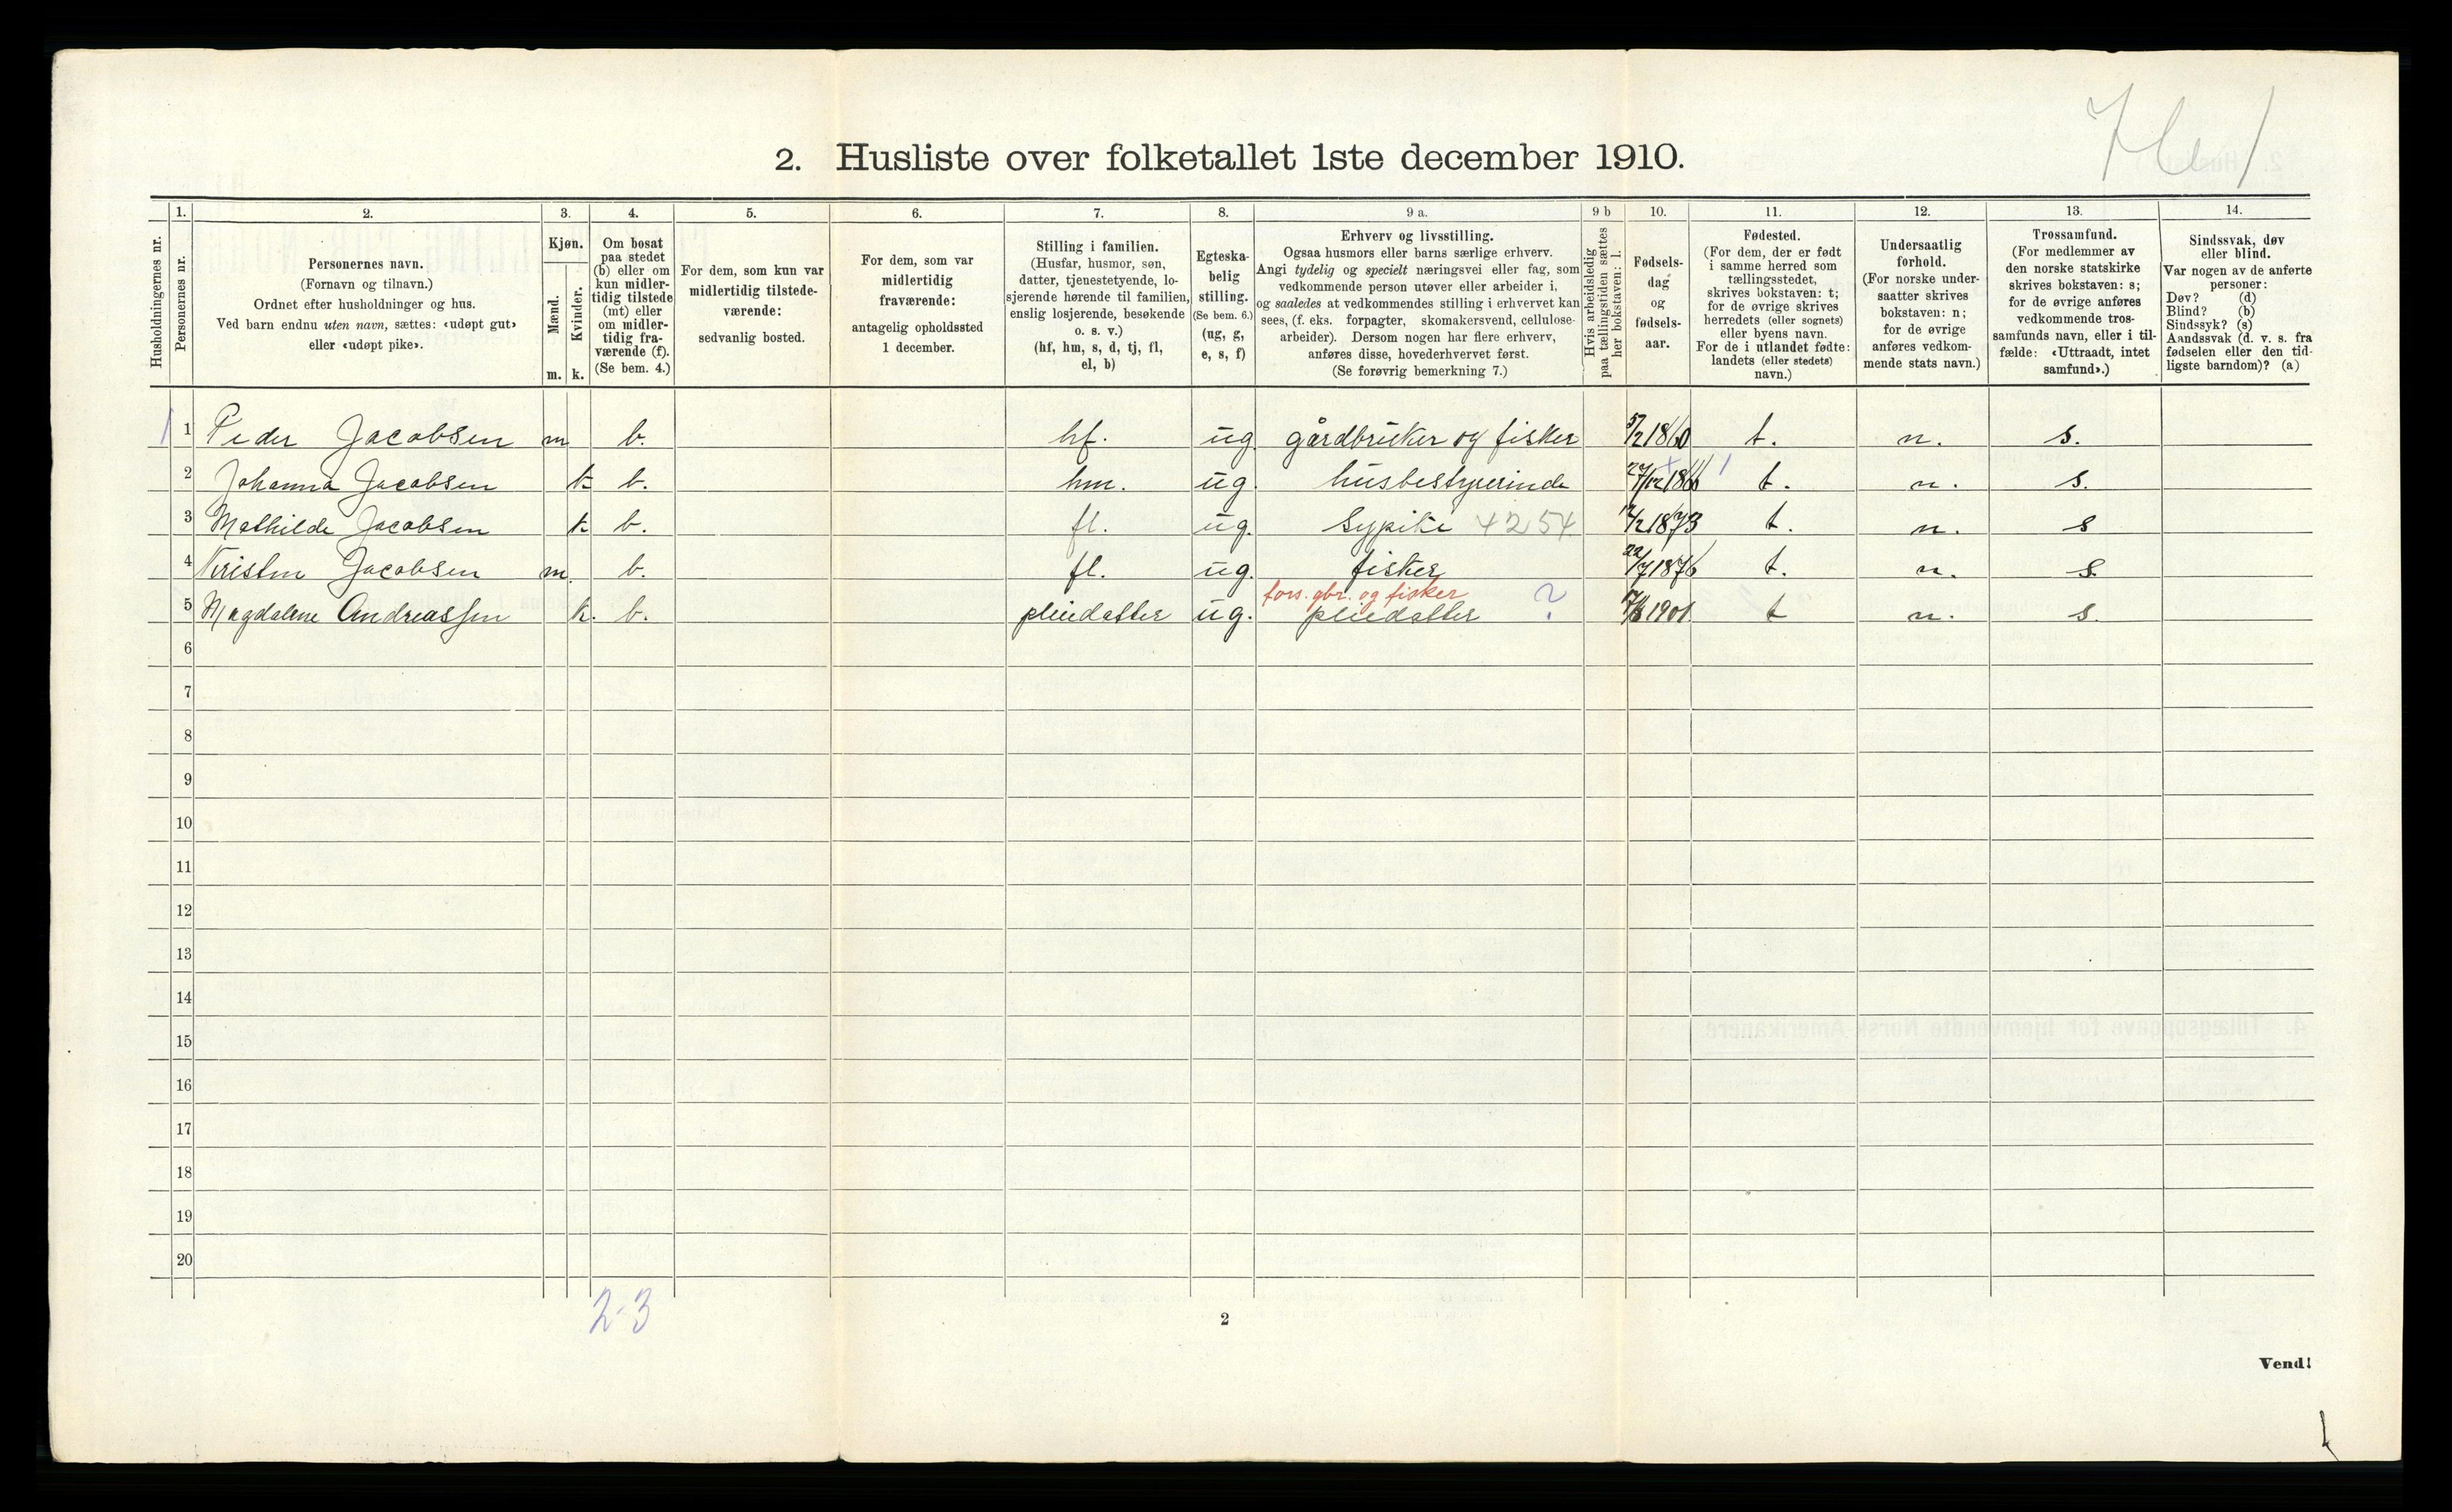 2. Husliste over folketallet 1ste december 1910.
Husholdningernes nr.
1. Personernes nr.
2. Personernes navn.
(Fornavn og tilnavn.)
Ordnet efter husholdninger og hus.
Ved barn endnu uten navn, sættes: «udøpt gut»
eller «udøpt pike».
3. Kjøn.
Mænd. m.
Kvinder. k.
4. Om bosat
paa stedet
(b) eller om
kun midler-
tidig tilstede
(mt) eller
om midler-
tidig fra-
værende (f).
(Se bem. 4.)
5. For dem, som kun var
midlertidig tilstede-
værende:
sedvanlig bosted.
6. For dem, som var
midlertidig
fraværende:
antagelig opholdssted
1 december.
7. Stilling i familien.
(Husfar, husmor, søn,
datter, tjenestetyende, lo-
sjerende hørende til familien,
enslig losjerende, besøkende
o. s. v.)
(hf, hm, s, d, tj, fl,
el, b)
8. Egteska-
belig
stilling.
(Se bem. 6.)
(ug, g,
e, s, f)
9 a. Erhverv og livsstilling.
Ogsaa husmors eller barns særlige erhverv.
Angi tydelig og specielt næringsvei eller fag, som
vedkommende person utøver eller arbeider i,
og saaledes at vedkommendes stilling i erhvervet kan
sees, (f. eks. forpagter, skomakersvend, cellulose-
arbeider). Dersom nogen har flere erhverv,
anføres disse, hovederhvervet først.
(Se forøvrig bemerkning 7.)
9 b Hvis arbeidsledig
paa tællingstiden sættes
her bokstaven: l.
10. Fødsels-
dag
og
fødsels-
aar.
11. Fødested.
(For dem, der er født
i samme herred som
tællingsstedet,
skrives bokstaven: t;
for de øvrige skrives
herredets (eller sognets)
eller byens navn.
For de i utlandet fødte:
landets (eller stedets)
navn.)
12. Undersaatlig
forhold.
(For norske under-
saatter skrives
bokstaven: n;
for de øvrige
anføres vedkom-
mende stats navn.)
13. Trossamfund.
(For medlemmer av
den norske statskirke
skrives bokstaven: s;
for de øvrige anføres
vedkommende tros-
samfunds navn, eller i til-
fælde: «Uttraadt, intet
samfund».)
14. Sindssvak, døv
eller blind.
Var nogen av de anførte
personer:
Døv? (d)
Blind? (b)
Sindssyk? (s)
Aandssvak (d. v. s. fra
fødselen eller den tid-
ligste barndom)? (a)
1 1 Peder Jacobsen m b. hf. ug gårdbruker og fisker 5/2 1860 t. n. s.
2 Johanna Jacobsen k b. hm. ug. husbestyrerinde 27/12 1866 t. n. s.
3 Mathilde Jacobsen k b. fl. ug. Sypike 4254 1873 t. n. s
4 Kristen Jacobsen m. b. fl. ug. fisker 22/7 1876 t. n. s.
fors. gbr. og fisker
5 Magdalene Andreassen k. b. pleiedatter ug. pleiedatter ? 1901 t n. s.
6
7
8
9
10
11
12
13
14
15
16
17
18
19
20
2-3
2
Vend!